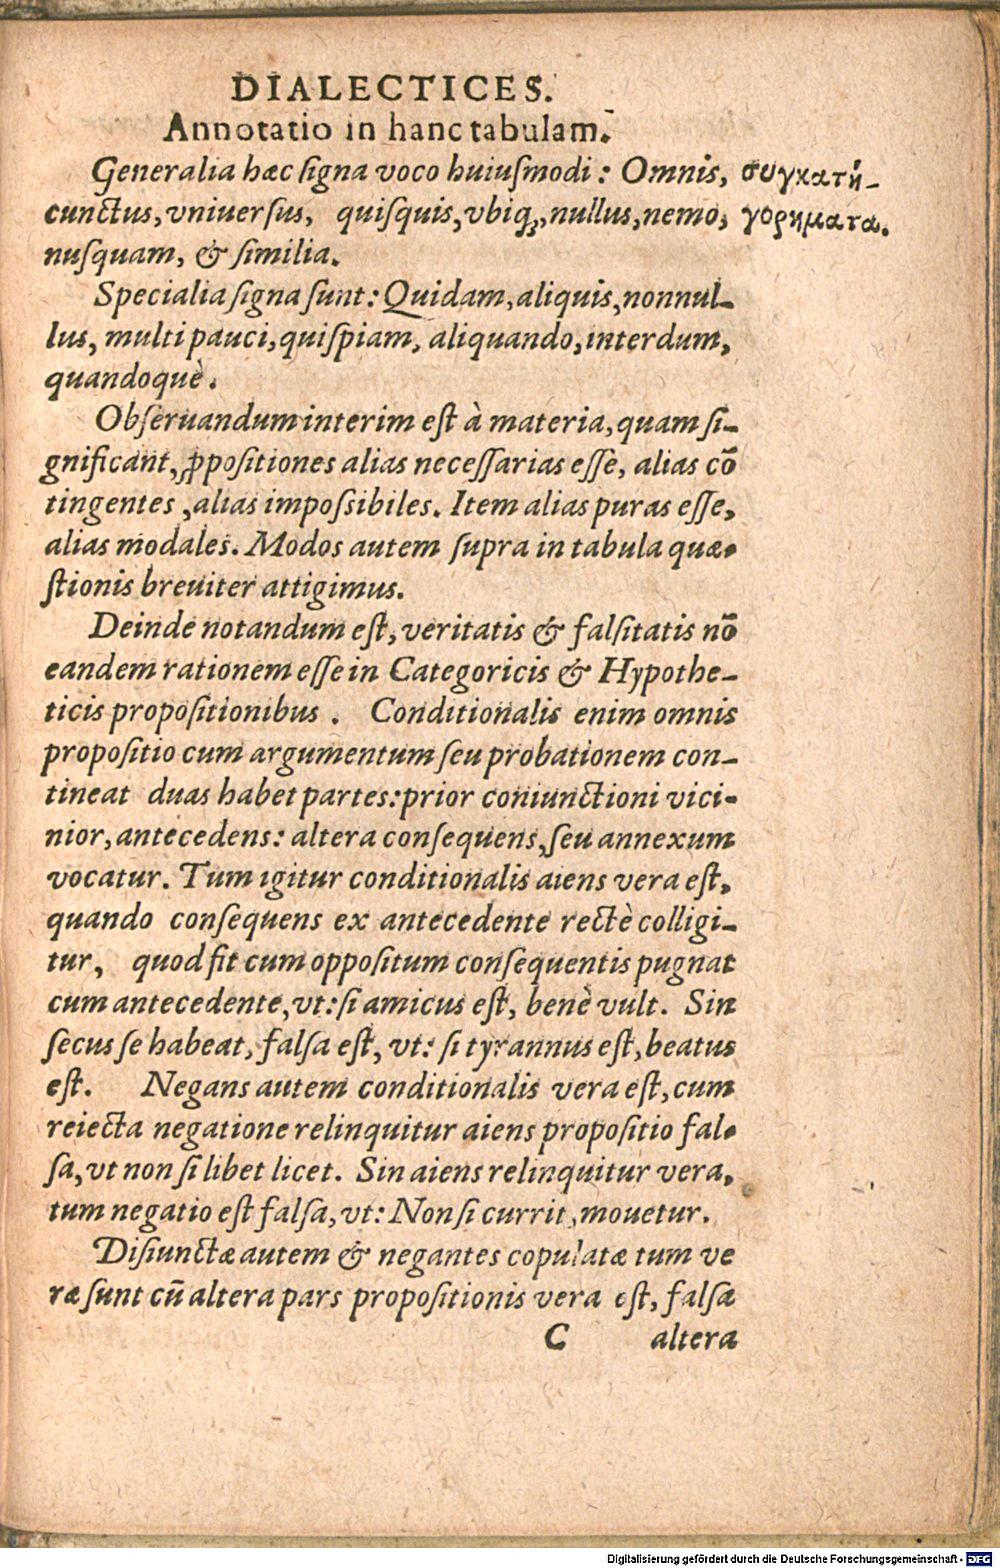 DIALECTICES.
Annotatio in hanc tabulam.
Generalia hæc signa voco huiusmodi: Omnis,
συγκατή-
cunctus, vniuersus, quisquis, vbiq;, nullus, nemo,
γορηματα.
nusquam, & similia.
Specialia signa sunt: Quidam, aliquis, nonnul-
lus, multi pauci, quispiam, aliquando, interdum,
quandoquè.
Obseruandum interim est à materia, quam si-
gnificant, ꝓpositiones alias necessarias esse, alias cō
tingentes, alias impossibiles. Item alias puras esse,
alias modales. Modos autem supra in tabula quæ-
stionis breuiter attigimus.
Deinde notandum est, veritatis & falsitatis nō
eandem rationem esse in Categoricis & Hypothe-
ticis propositionibus. Conditionalis enim omnis
propositio cum argumentum seu probationem con-
tineat duas habet partes: prior coniunctioni vici-
nior, antecedens: altera consequens, seu annexum
vocatur. Tum igitur conditionalis aiens vera est,
quando consequens ex antecedente rectè colligi-
tur, quod fit cum oppositum consequentis pugnat
cum antecedente, vt: si amicus est, benè vult. Sin
secus se habeat, falsa est, vt: si tyrannus est, beatus
est. Negans autem conditionalis vera est, cum
reiecta negatione relinquitur aiens propositio fal-
sa, vt non si libet licet. Sin aiens relinquitur vera,
tum negatio est falsa, vt: Non si currit, mouetur.
Disiunctæ autem & negantes copulatæ tum ve
ræ sunt cū altera pars propositionis vera est, falsa
C altera
Digitalisierung gefördert durch die Deutsche Forschungsgemeinschaft - DFG